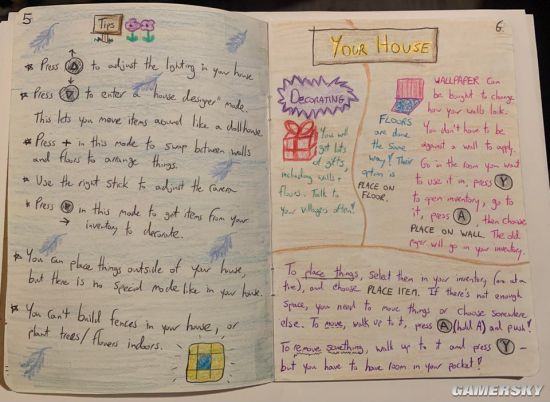 5
Tips
* Press to adjust the lighting in your house
* Press to enter a "house designer" mode.
This lets you move items around like a dollhouse.
* Press + in this mode to swap between walls
and floors to arrange things.
* Use the right stick to adjust the camera
* Press in this mode to get items from your
inventory to decorate.
* You can place things outside of your house,
but there is no special mode like in your house.
* You can't build fences in your house, or
plant trees/flowers indoors.
6
YOUR HOUSE
DECORATING
You will
get lots
of gifts,
including walls +
floors. Talk to
your villagers often!
FLOORS
are done
the same
way! Their
option is
PLACE ON
FLOOR.
WALLPAPER can
be bought to change
how your walls look.
You don't have to be
against a wall to apply.
Go in the room you want
to use it in, press Y
to open inventory, go to
it, press A, then choose
PLACE ON WALL. The old
paper will go in your inventory.
To place things, select them in your inventory (one at a
time), and choose PLACE ITEM. If there's not enough
space, you need to move things or choose somewhere
else. To move, walk up to it, press A (hold A) and push!
To remove something, walk up to it and press Y -
but you have to have room in your pocket!
GAMERSKY